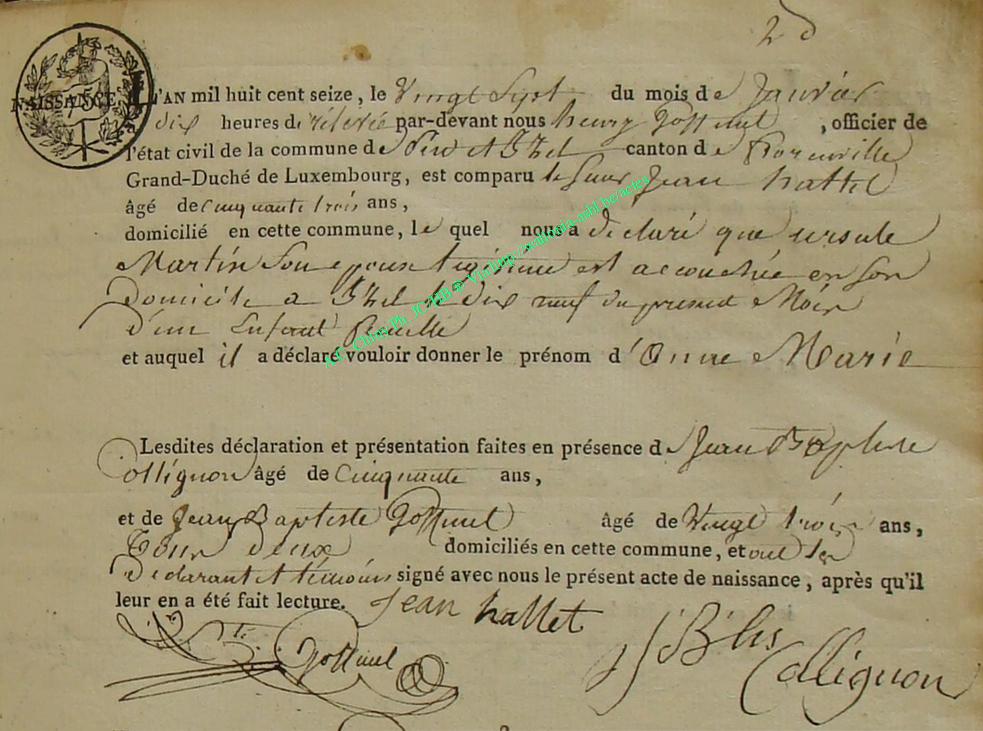 2d
NAISSANCE
L'AN mil huit cent seize, le Vingt Sept du mois de Janvier
dix heures de relevée par-devant nous henry Goffinet, officier de
l'état civil de la commune de Pin et Izel canton de florenville
Grand-Duché de Luxembourg, est comparu le Sieur Jean hallet
âgé de cinquante trois ans,
domicilié en cette commune, le quel nous a déclaré que ursule
Martin Son epouse legitime est accouchée en son
Domicile a Izel le dix neuf du present Mois
d'un Enfant femelle
et auquel il a déclaré vouloir donner le prénom d'Anne Marie
Lesdites déclaration et présentation faites en présence de Jean Baptiste
Collignon âgé de Cinquante ans,
et de Jean Baptiste Goffinet âgé de Vingt trois ans,
Tous deux domiciliés en cette commune, et ont les
Declarant et temoins signé avec nous le présent acte de naissance, après qu'il
leur en a été fait lecture. Jean hallet
Goffinet
Collignon